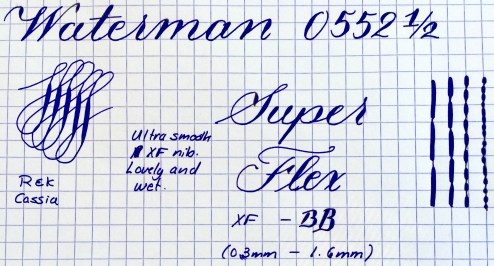 Waterman 0552 1/2
Ultra smooth
XF nib.
Lovely and
wet.
R&K
Cassia
Super
Flex
XF - BB
(0.3mm - 1.6mm)